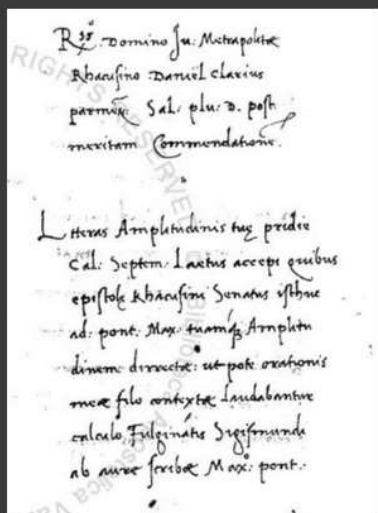 R.mo Domino Ju. Metrapolitæ
Rhacusino Daniel Clarius
parmēn. Sal: plu: D. post
meritam Commendationē.
Litteras Amplitudinis tuę pridie
Cal: Septem: Laetus accepi quibus
epistolę Rhacusini Senatus isthuc
ad. pont. Max: tuamq; Amplitu
dinem directæ: ut pote orationis
meæ filo contextæ laudabantur
calculo Fulginātis Sigismundi
ab aure scribæ Max: pont:
RIGHTS RESERVED
Biblioteca Apostolica